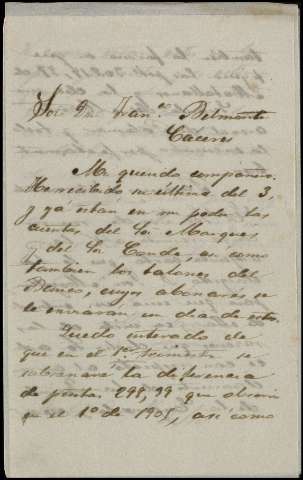 Sor Dn Franco Belmonte
Caceres
Mi querido compañero:
He recibido su última del 3,
y ya estan en mi poder las
cuentas del Sr. Marqués
y del Sr. Conde, asi como
tambien los talones del
Banco, cuyos abonares se
le enviaran un dia de estos.
Quedo enterado de
que en el 1er trimestre se
la diferencia
de pesetas 298,99 que
en el 1º de 1905, asi como